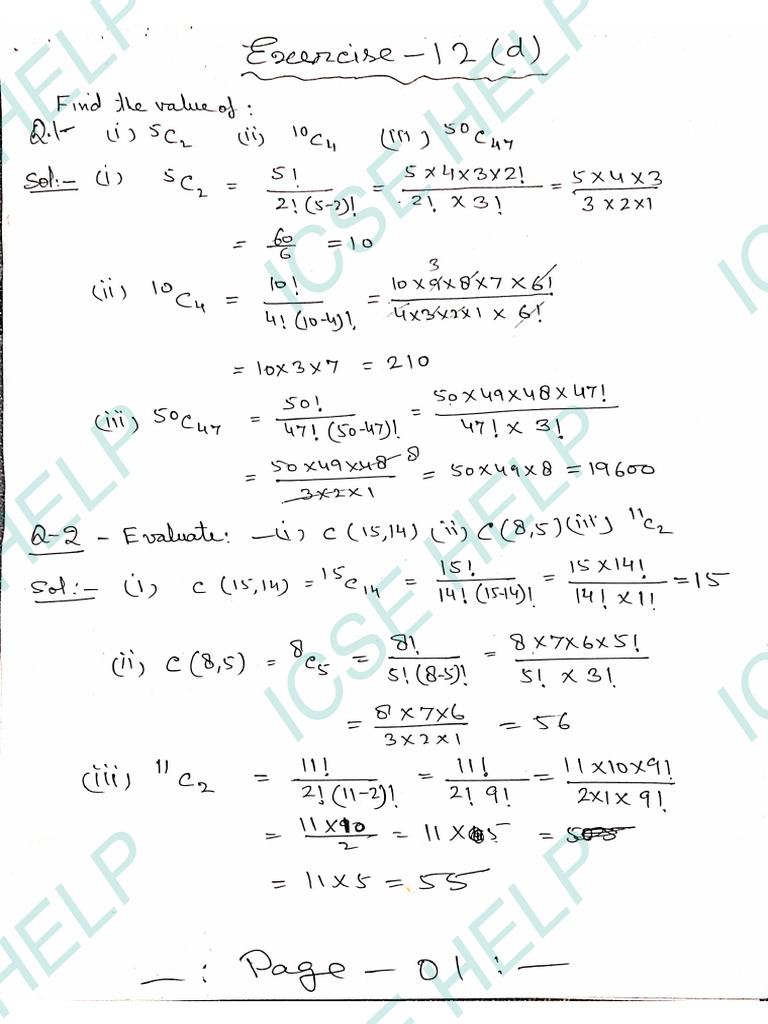 Exercise - 12 (d)
Find the value of :
Q.1- (i) ⁵C₂ (ii) ¹⁰C₄ (iii) ⁵⁰C₄₇
Sol:- (i) ⁵C₂ = 5! / 2! (5-2)! = 5 × 4 × 3 × 2! / 2! × 3! = 5 × 4 × 3 / 3 × 2 × 1
= 60/6 = 10
(ii) ¹⁰C₄ = 10! / 4! (10-4)! = 10 × 9 × 8 × 7 × 6! / 4 × 3 × 2 × 1 × 6! 3
= 10 × 3 × 7 = 210
(iii) ⁵⁰C₄₇ = 50! / 47! (50-47)! = 50 × 49 × 48 × 47! / 47! × 3!
= 50 × 49 × 48 / 3 × 2 × 1 8 = 50 × 49 × 8 = 19600
Q-2 - Evaluate: - (i) C (15,14) (ii) C (8,5) (iii) ¹¹C₂
Sol:- (i) C (15,14) = ¹⁵C₁₄ = 15! / 14! (15-14)! = 15 × 14! / 14! × 1! = 15
(ii) C (8,5) = ⁸C₅ = 8! / 5! (8-5)! = 8 × 7 × 6 × 5! / 5! × 3!
= 8 × 7 × 6 / 3 × 2 × 1 = 56
(iii) ¹¹C₂ = 11! / 2! (11-2)! = 11! / 2! 9! = 11 × 10 × 9! / 2 × 1 × 9!
= 11 × 10 / 2 = 11 × 5 =
= 11 × 5 = 55
- : Page - 01 : -
ICSE HELP